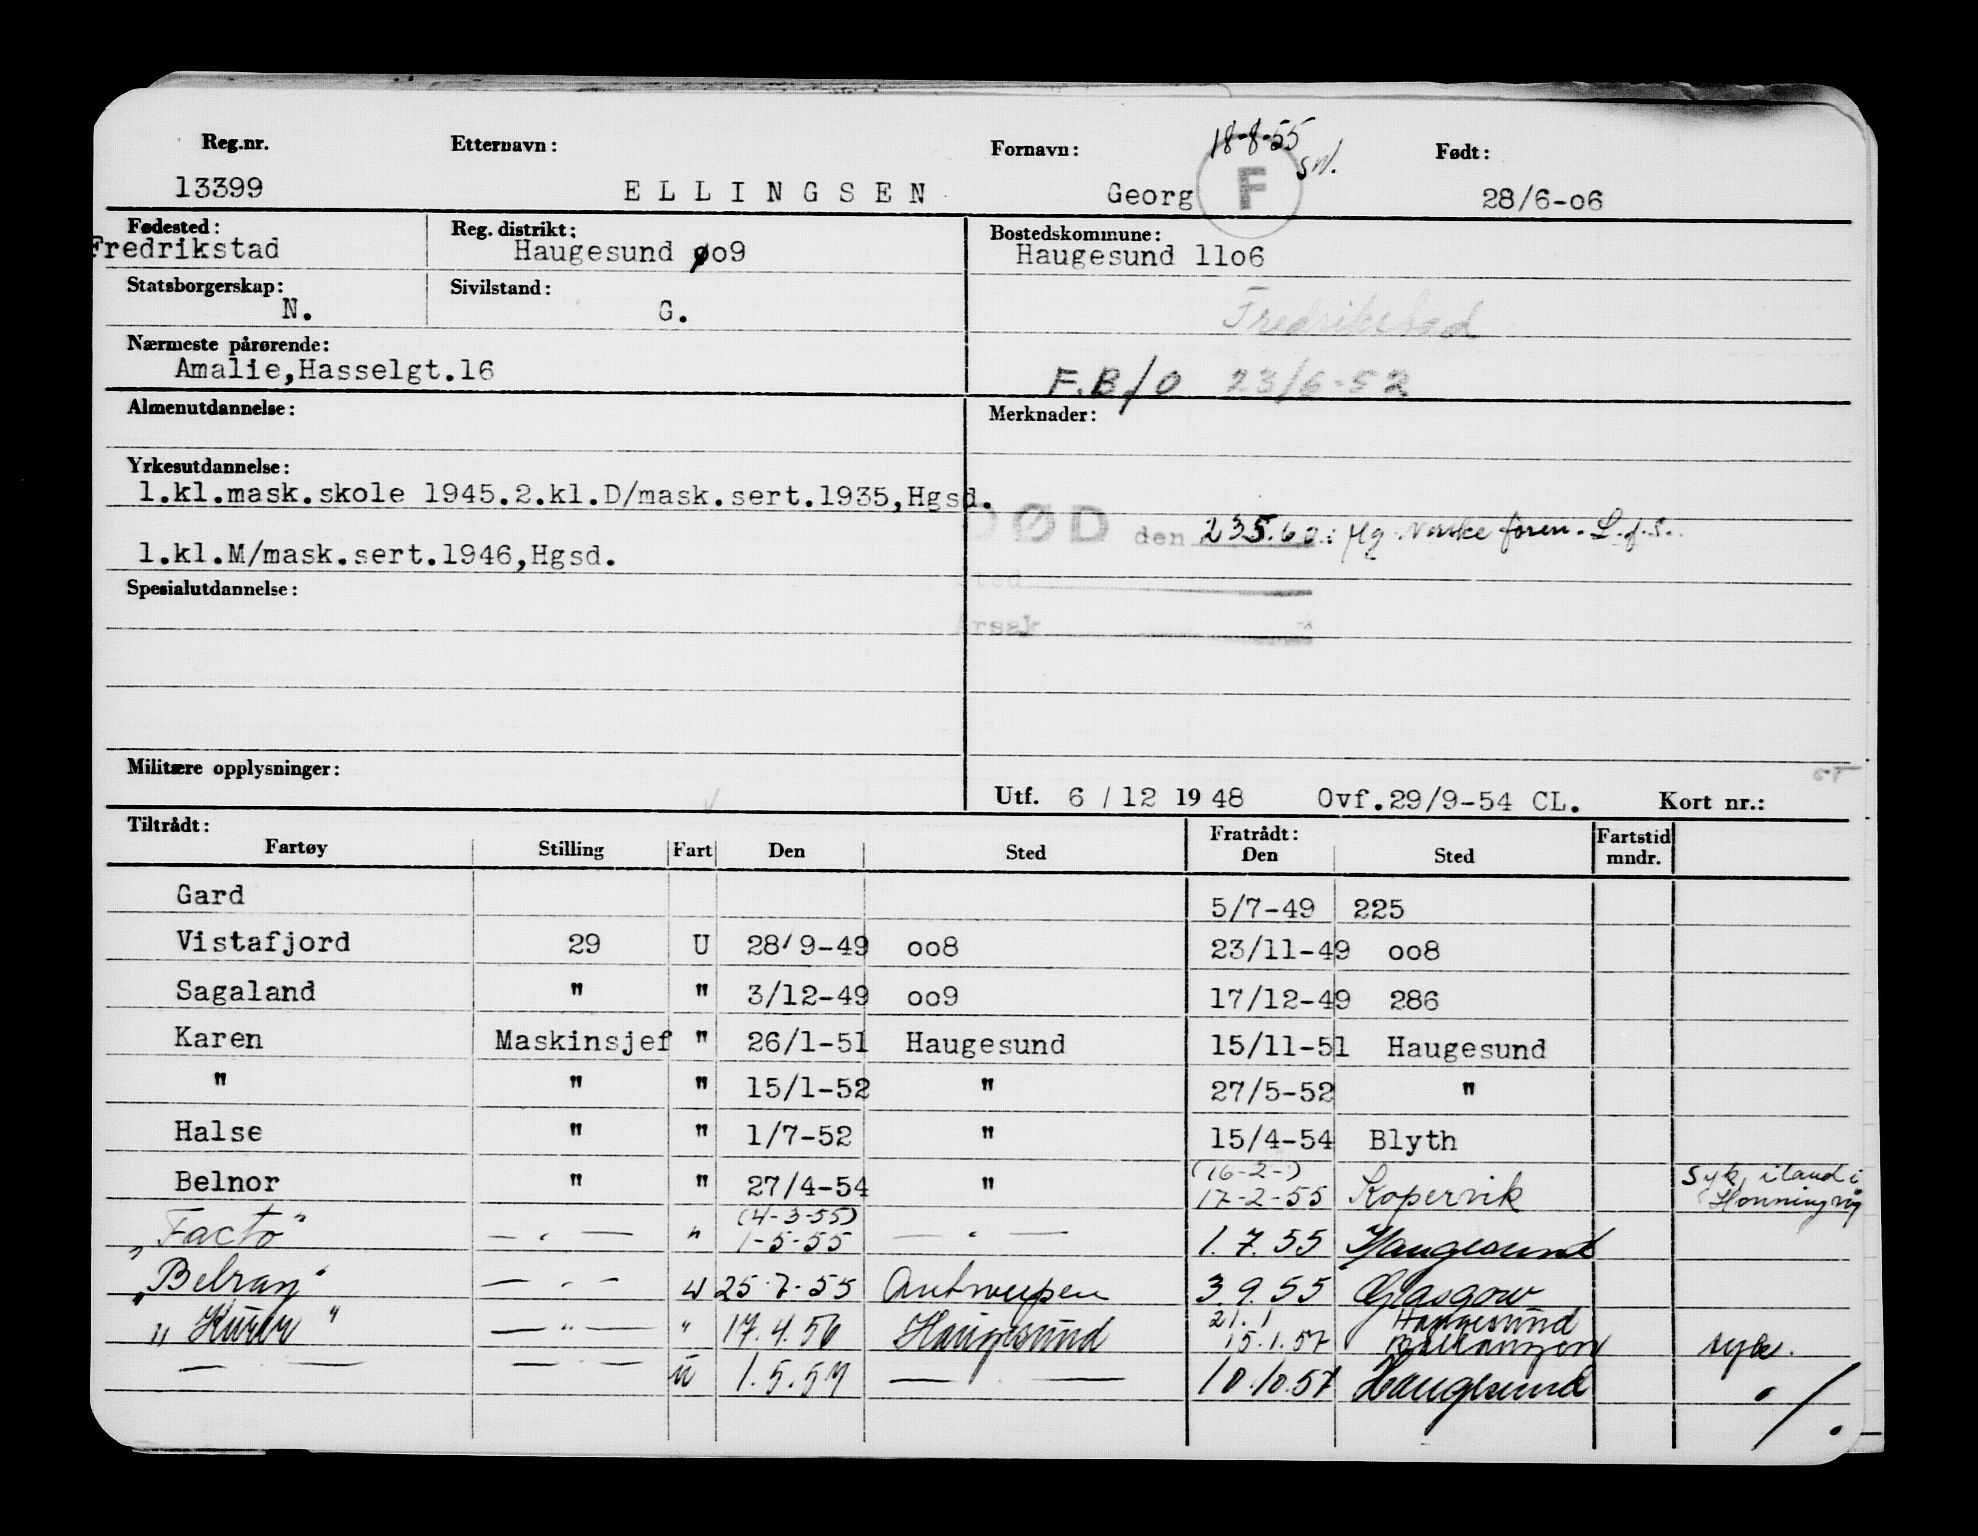 18-8-55
Reg.nr. Etternavn: Fornavn: Født:
13399 ELLINGSEN Georg F 28/6-06
Fødested: Reg. distrikt: Bostedskommune:
Fredrikstad Haugesund øo9 Haugesund 11o6
Statsborgerskap: Sivilstand:
N. G. Fredrikstad
Nærmeste pårørende:
Amalie,Hasselgt.16 F.B/O 23/6-52
Almenutdannelse: Merknader:
Yrkesutdannelse:
1.kl.mask.skole 1945.2.kl.D/mask.sert.1935,Hgsd.
DØD den 235.60.: flg. Norske foren. L.f.S.
1.kl.M/mask.sert.1946,Hgsd.
Sted
Spesialutdannelse:
Årsak
Militære opplysninger:
Utf. 6 / 12 1948 Ovf.29/9-54 CL. Kort nr.:
Tiltrådt: Fratrådt: Fartstid
Fartøy Stilling Fart Den Sted Den Sted mndr.
Gard 5/7-49 225
Vistafjord 29 U 28/9-49 oo8 23/11-49 oo8
Sagaland " " 3/12-49 oo9 17/12-49 286
Karen Maskinsjef " 26/1-51 Haugesund 15/11-51 Haugesund
" " " 15/1-52 " 27/5-52 "
Halse " " 1/7-52 " 15/4-54 Blyth
(16-2-) Syk, iland i
Belnor " " 27/4-54 " 17-2-55 Kopervik Honningvåg
(4-3-55)
"Facto" — . — " 1-5-55 — . — 1.7.55 Haugesund
"Belray" — . — U 25.7.55 Antwerpen 3.9.55 Glasgow
21.1 Haugesund
"Kurér" — " — " 17.4.56 Haugesund 15.1.57 Ballangen syk.
— — — — U 1.5.57 — — 10.10.57 Haugesund ./.